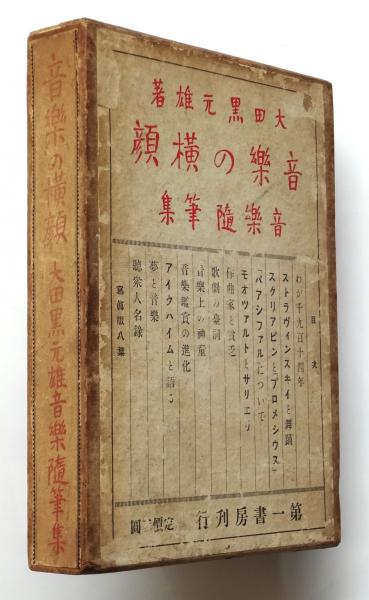 音樂の横顔 大田黒元雄音樂隨筆集
大田黒元雄著
音樂の横顔
音樂隨筆集
目次
わが千九百十四年
ストラヴィンスキイと舞踊
スクリアビンと「プロメシウス」
「パアシファル」について
モオツァルトとサリエリ
作曲家と貧乏
歌劇の臺詞
音樂上の神童
音樂鑑賞の進化
アイウハイムと語る
夢と音樂
聽衆人名錄
寫眞版八葉
第一書房刊行
定價二圓